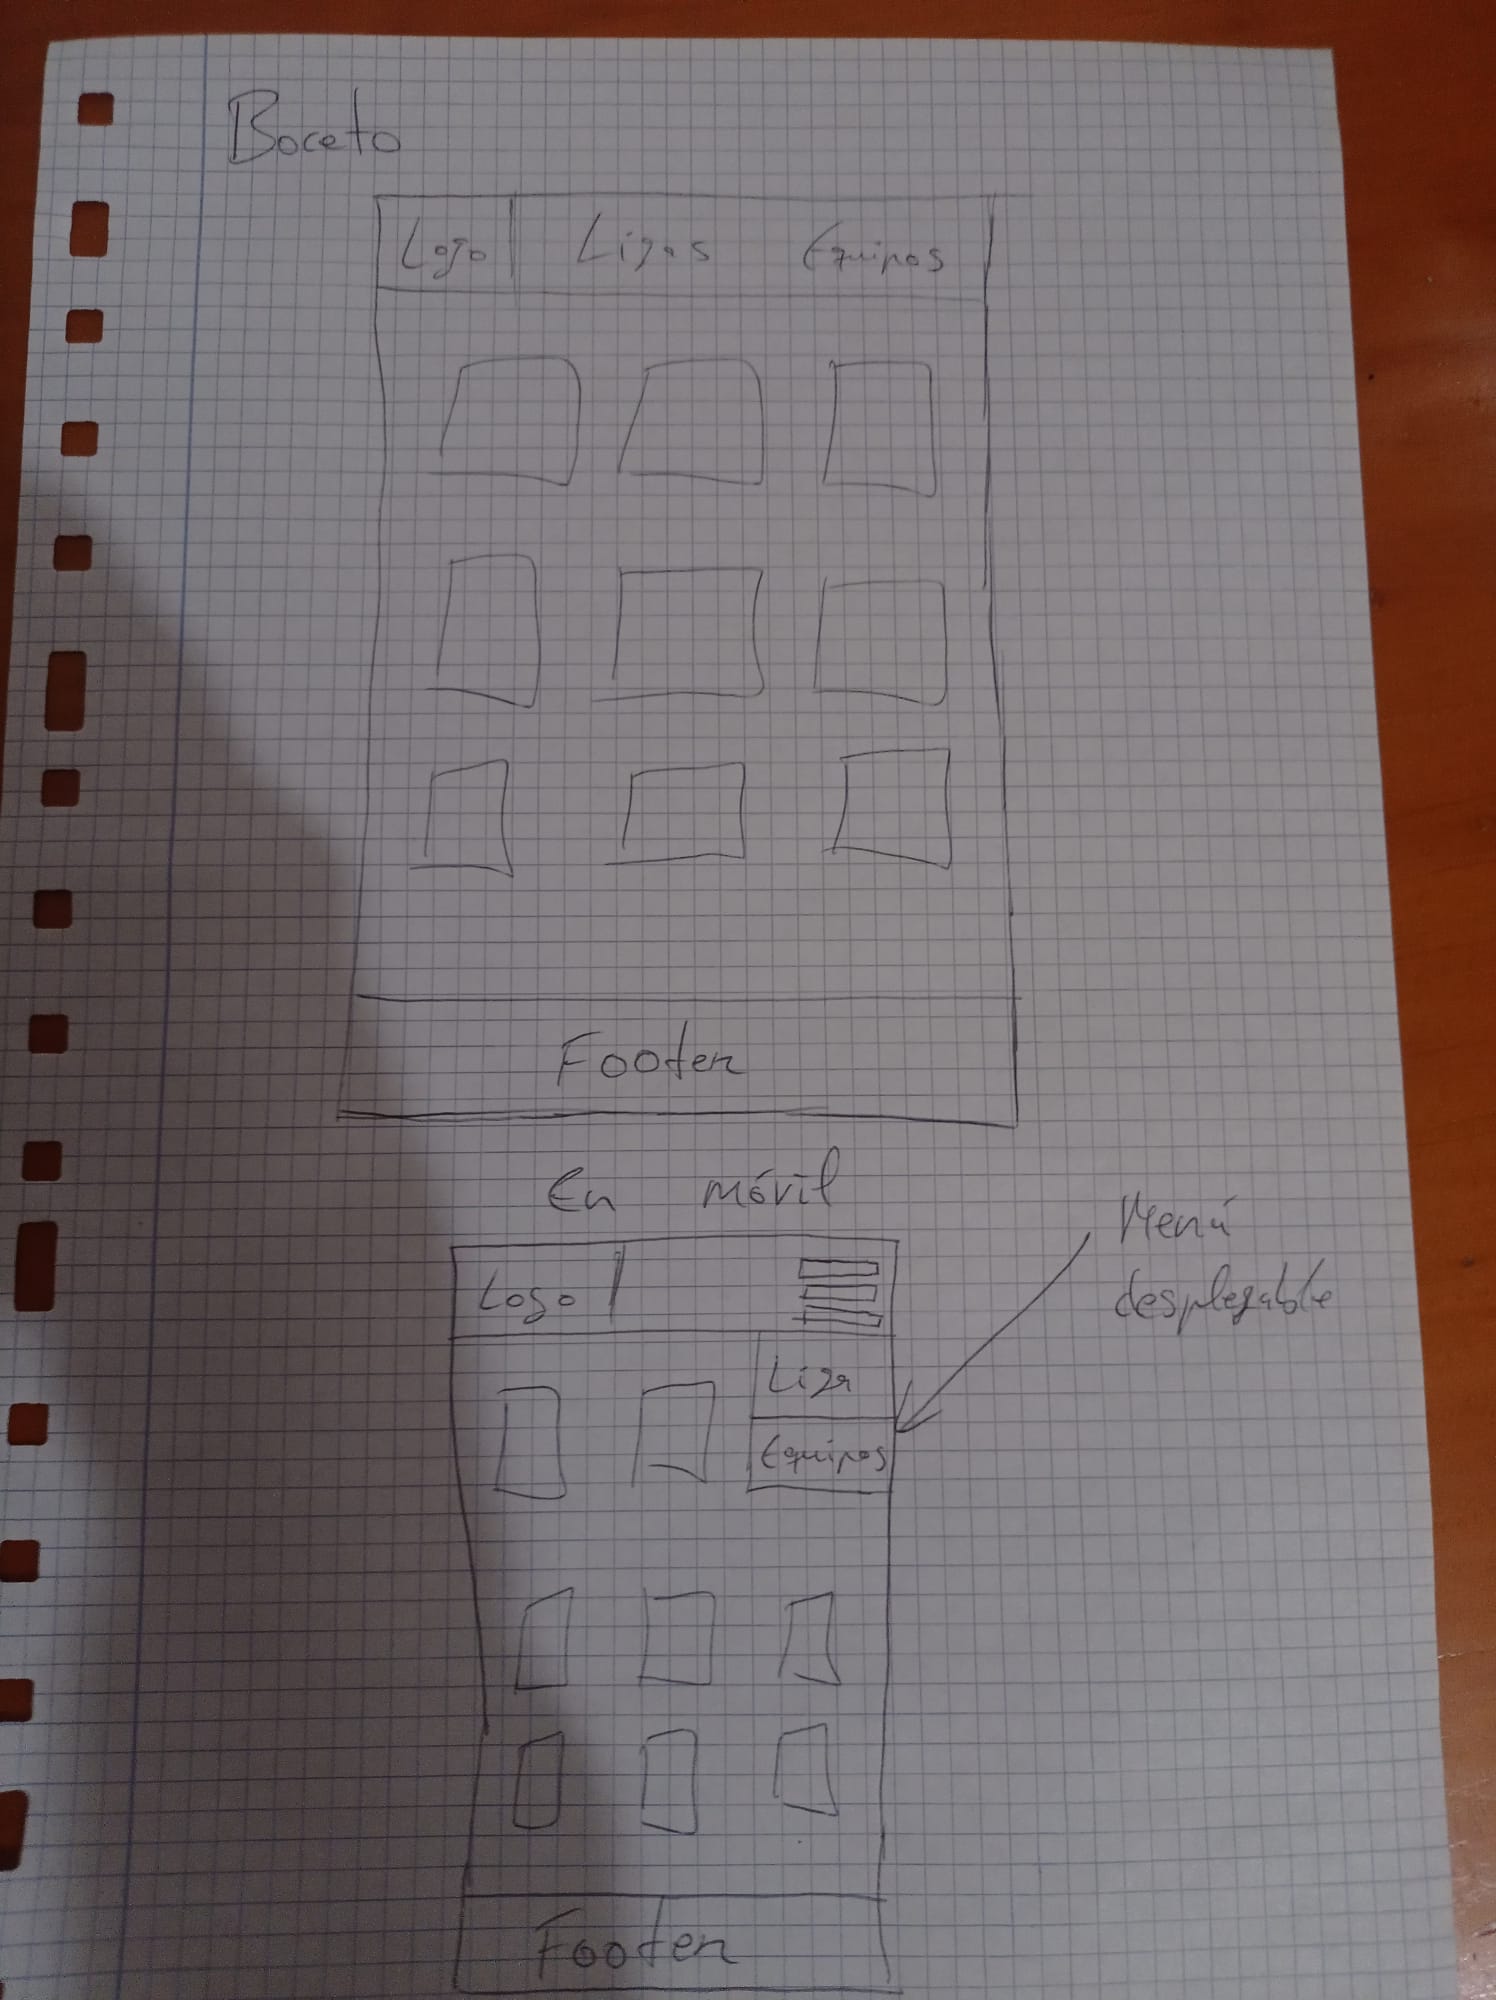 Boceto
Logo Ligas Equipos
Footer
En móvil
Menú
desplegable
Logo
Liga
Equipos
Footer